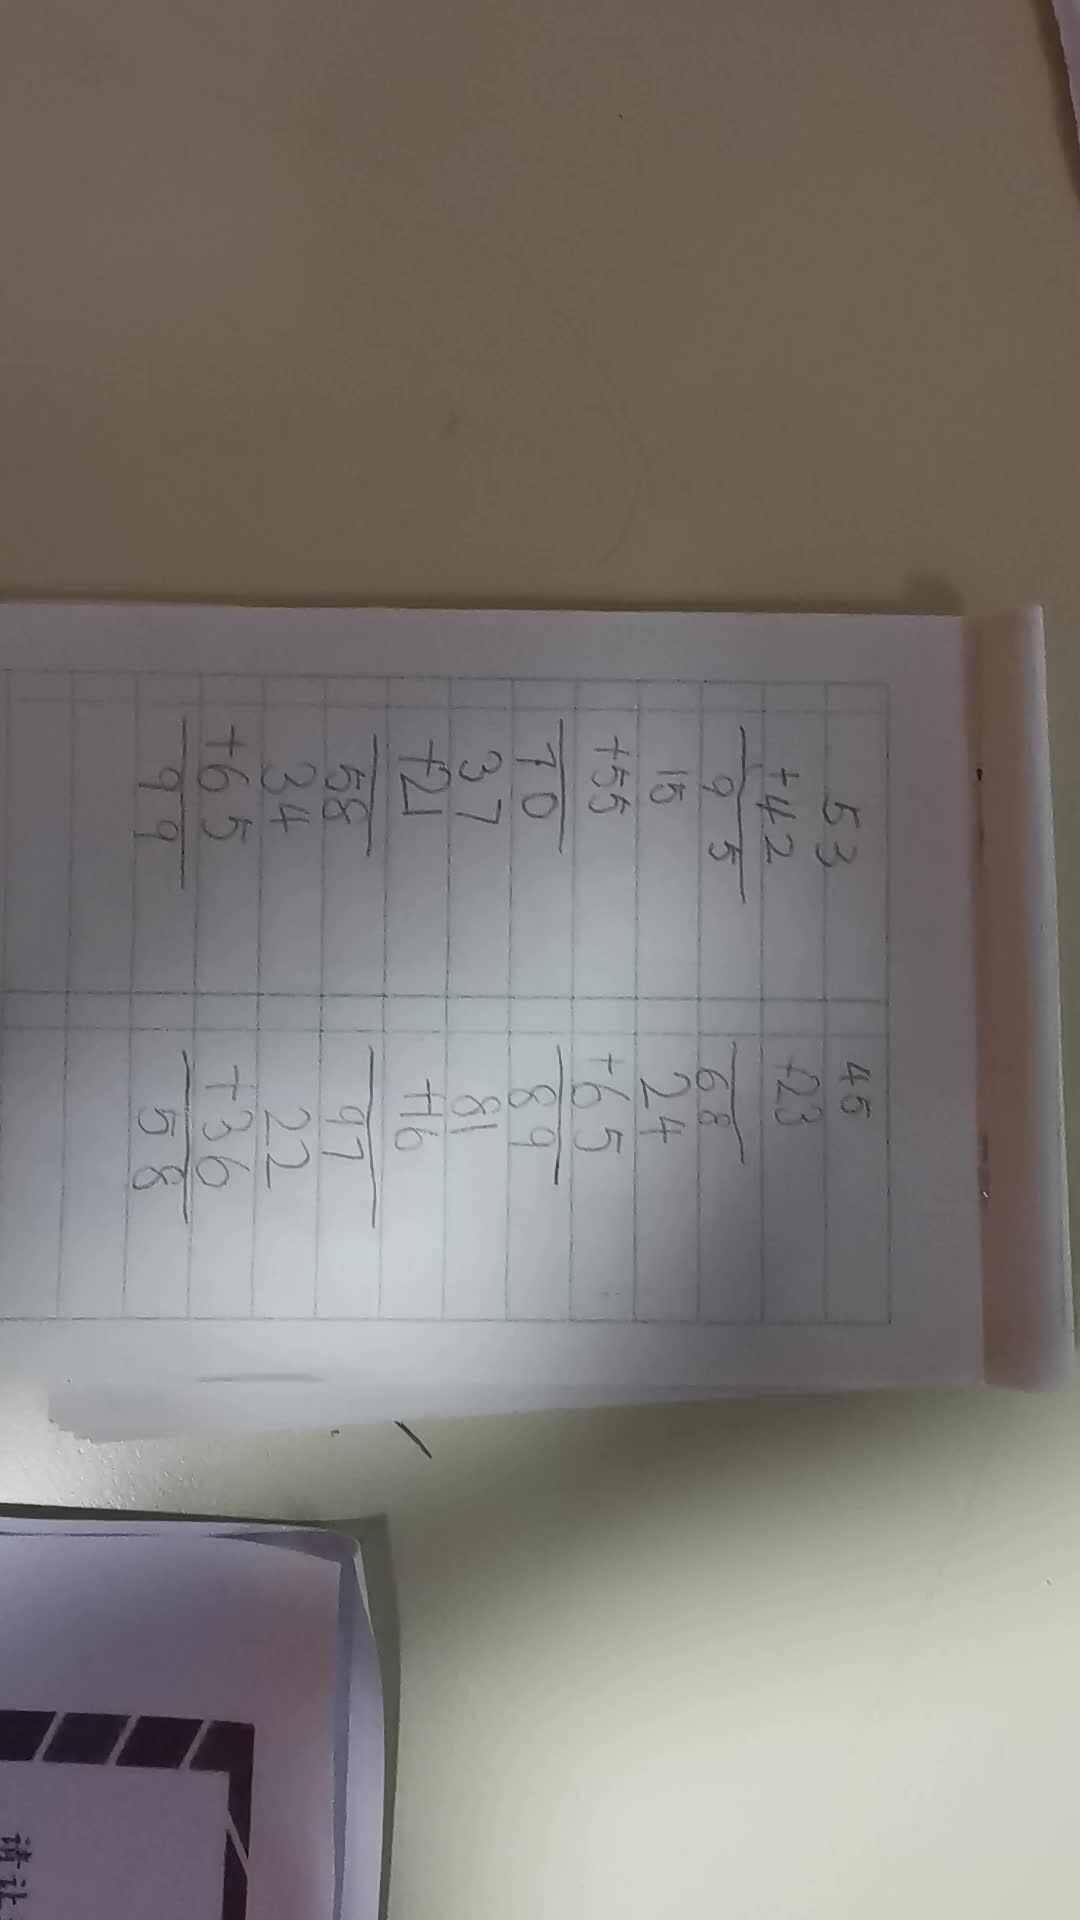 53
+42
95
15
+55
70
37
+21
58
34
+65
99
45
+23
68
24
+65
89
81
+16
97
22
+36
58